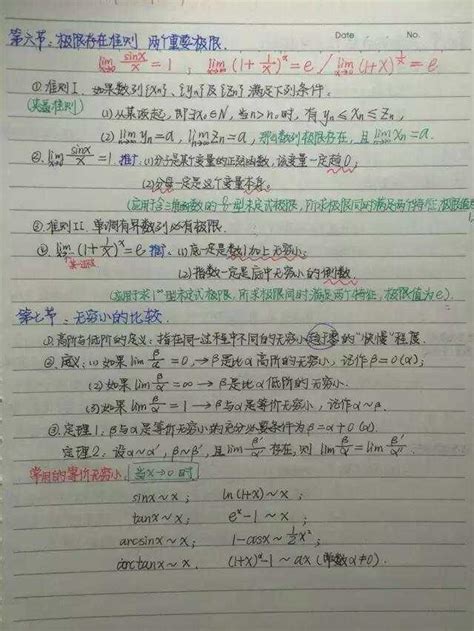 Date No.
第六节:极限存在准则 两个重要极限.
lim x→0 sinx/x = 1 ; lim x→∞ (1+1/x)^x = e / lim x→0 (1+x)^(1/x) = e
①准则I. 如果数列{xn}、{yn}及{zn}满足下列条件.
(夹逼准则) (1)从某项起,即∃n₀∈N,当n>n₀时,有 yn≤xn≤zn,
(2) lim n→∞ yn=a, lim n→∞ zn=a, 那么数列极限存在,且 lim n→∞ xn=a.
②. lim x→0 sinx/x = 1 推广:(1)分子是某个变量的正弦函数,该变量一定趋0;
(2)分母一定是这个变量本身。
(应用于含三角函数的0/0型未定式极限,所求极限同时满足两个特征,极限值为
③准则II. 单调有界数列必有极限.
④. lim x→∞ (1+1/x)^x = e 推广:(1)底一定是数1加上无穷小;
(2)指数一定是底中无穷小的倒数.
(应用于求1^∞型未定式极限,所求极限同时满足两个特征,极限值为e).
第七节:无穷小的比较.
①高阶与低阶的定义:指在同一过程中不同的无穷小趋于零的"快慢"程度.
②定义:(1)如果lim β/α = 0, → β是比α高阶的无穷小,记作β=o(α);
(2)如果lim β/α = ∞ → β是比α低阶的无穷小.
(3)如果lim β/α = 1 → β与α是等价无穷小,记作α~β.
③.定理1:β与α是等价无穷小的充分必要条件为β=α+o(α).
定理2:设α~α′, β~β′, 且lim β′/α′ 存在,则 lim β/α = lim β′/α′.
常用的等价无穷小,当x→0时
sinx~x; ln(1+x)~x;
tanx~x; e^x-1~x;
arcsinx~x; 1-cosx~½x²;
arctanx~x. (1+x)^α-1~αx (常数α≠0).